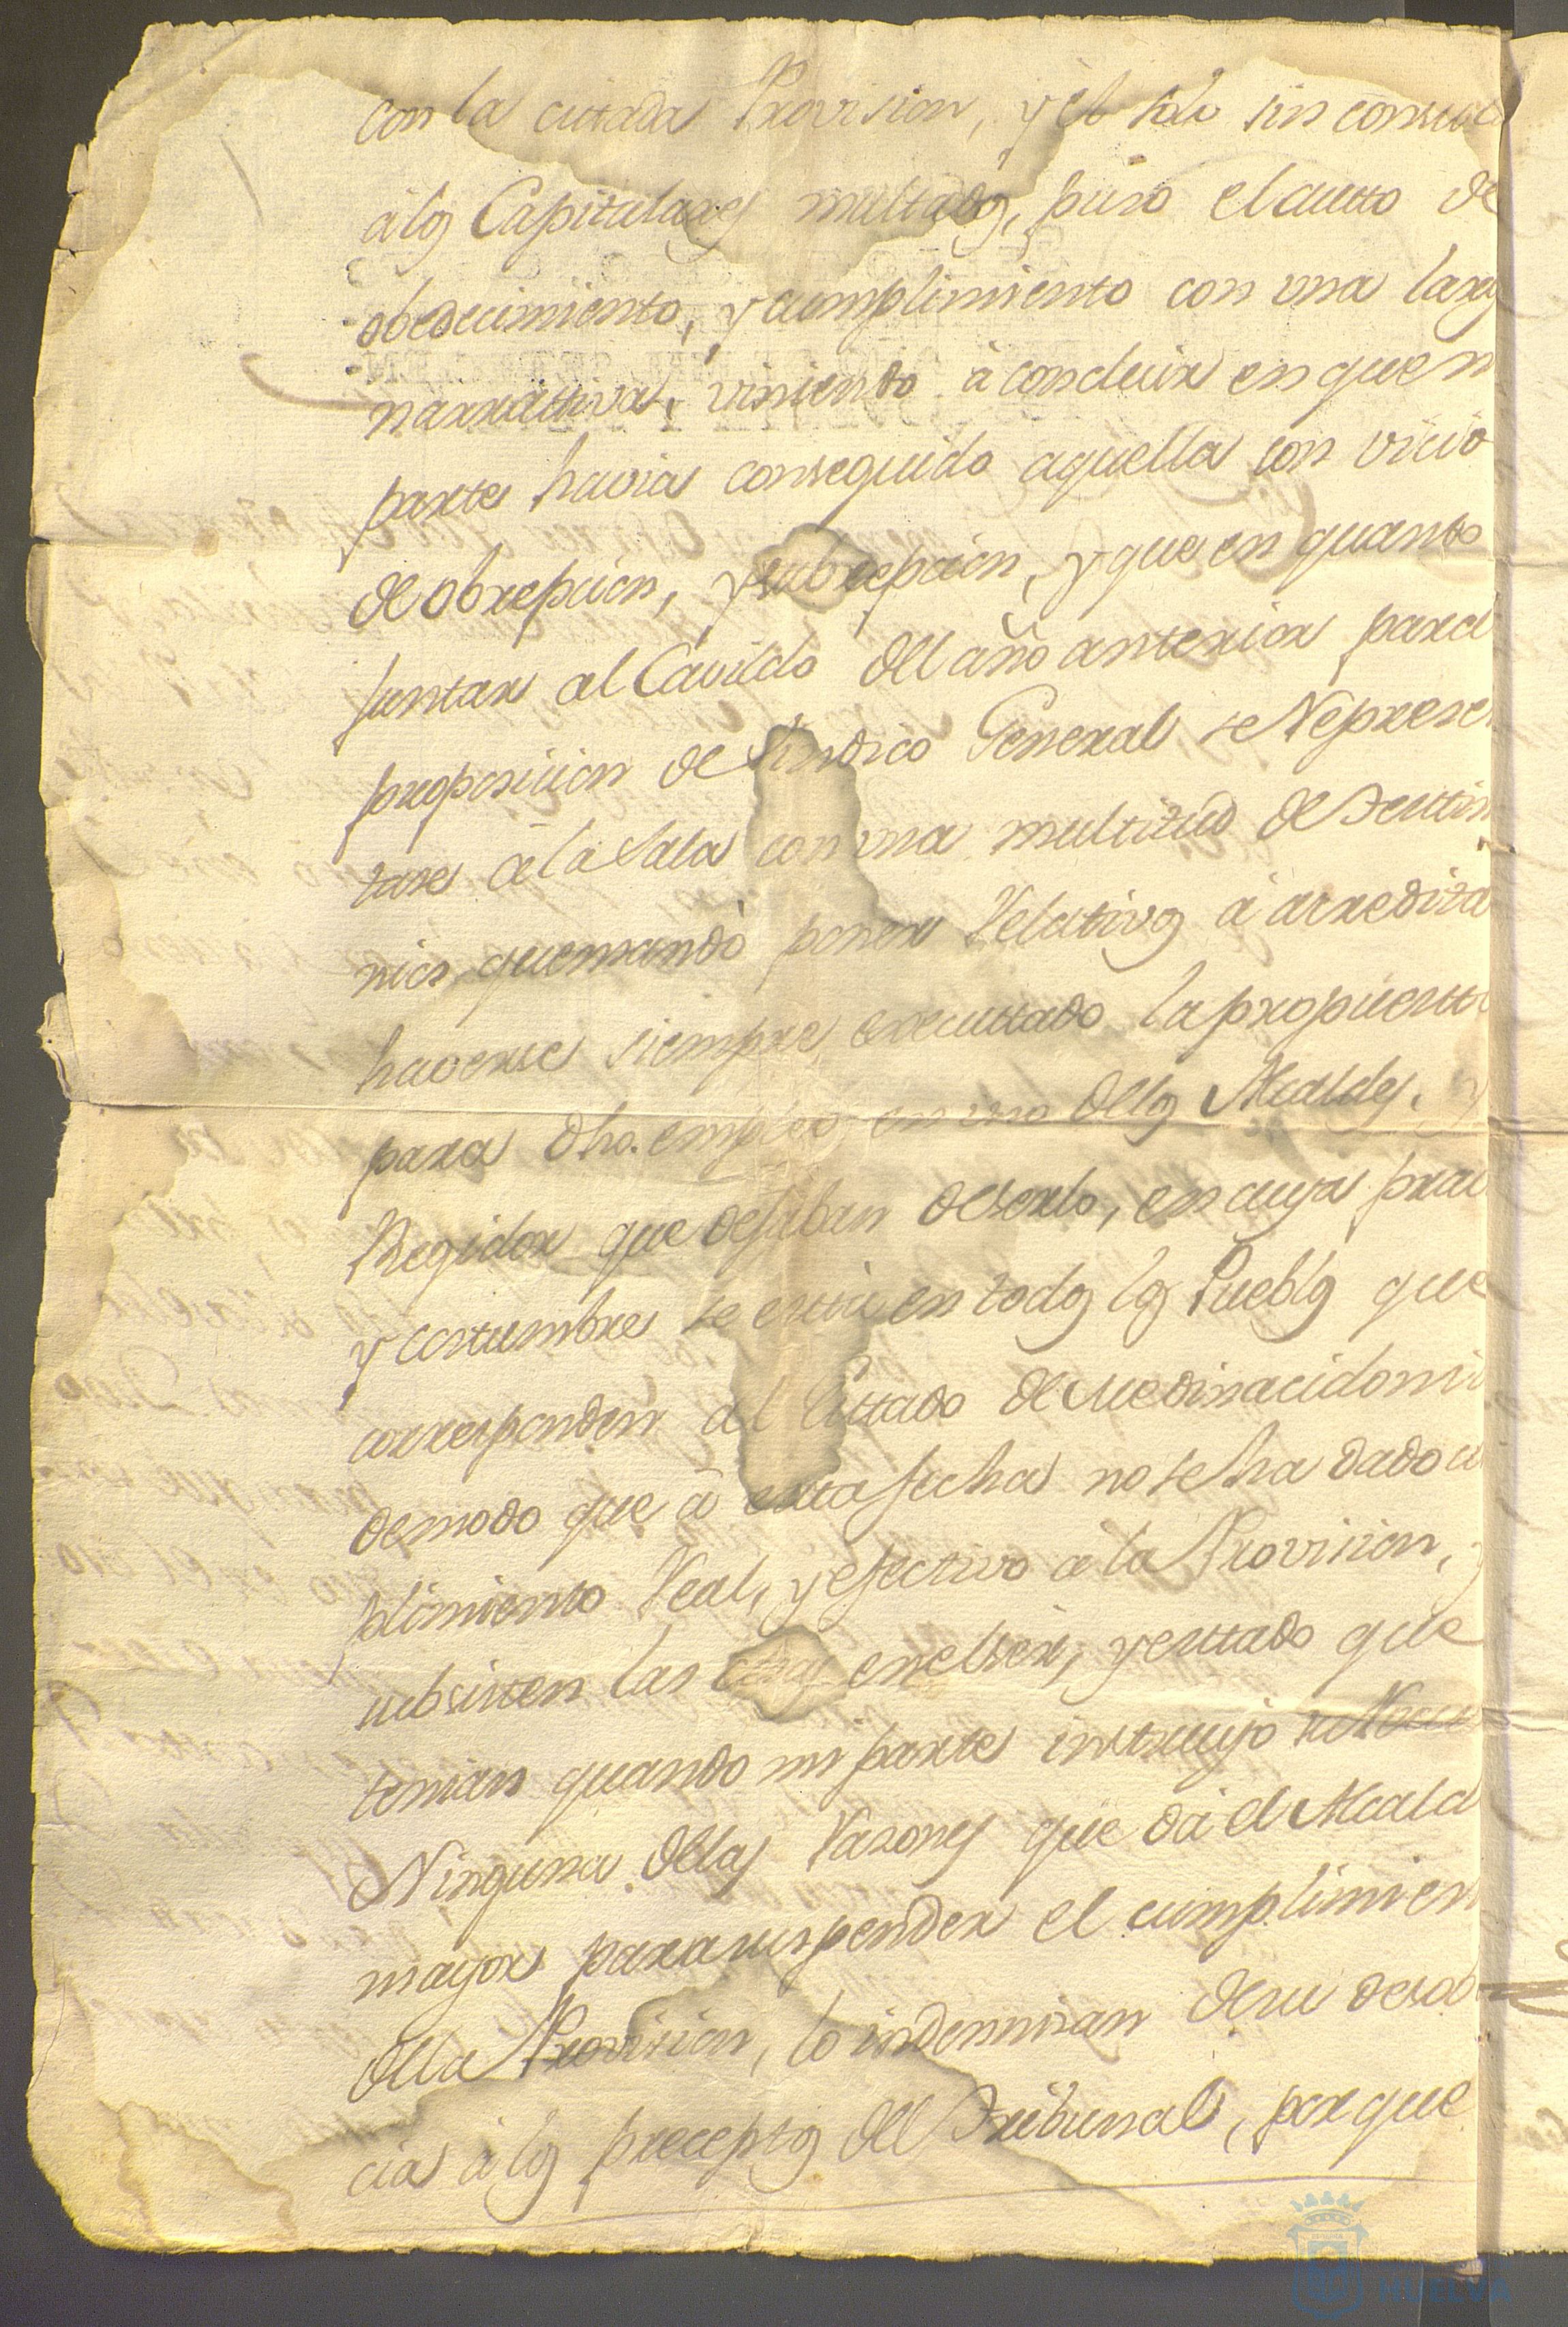 con la citada Provision, y él solo sin consul
à los Capitulares multados, puso el autto de
obedecimiento, y cumplimiento con una larg
narrattiva, viniendo à concluir en que m
parte havia conseguido aquella con vicio
de obrepcion, y subrepcion, y que en quanto
juntar al Cavildo del año anterior para l
proposicion de Sindico General se Represen
tase à la Sala con una multitud de Testtim
nios, que mandò poner Relativos à acredita
haverse siempre executtado la propuestta
para dho. empleo en uno de los Alcaldes, y
Regidor que dejaban de serlo, en cuya prac
y costumbre se està en todos los Pueblos que
corresponden al Esttado de Medinacidoni
de modo que à esta fecha no se ha dado cu
plimiento Real, y efectivo à la Provision, y
subsisten las cosas en el ser, y esttado que
tenian quando mi parte instruyó su Recu
Ninguna de las Razones que dà el Alcald
mayor para suspender el cumplimien
de la Provision, lo indemnizan de su desob
cia à los preceptos del Tribunal, porque
HUELVA